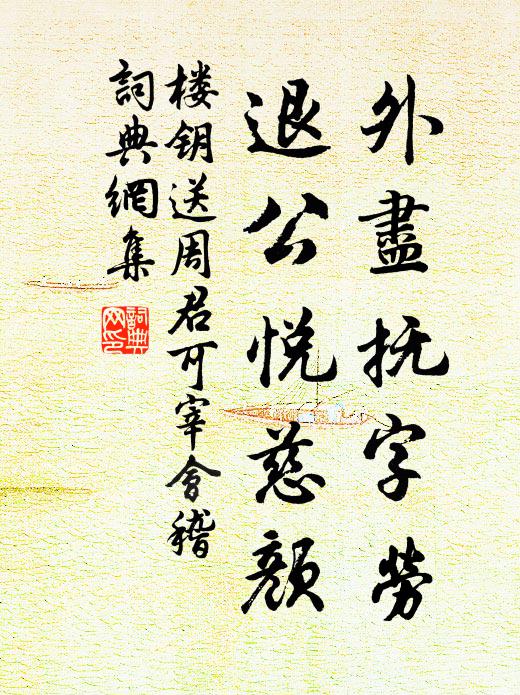 外盡抚字勞
退公悦慈顔
楼钥送周君可宰會稽
詞典網集
詞典网印